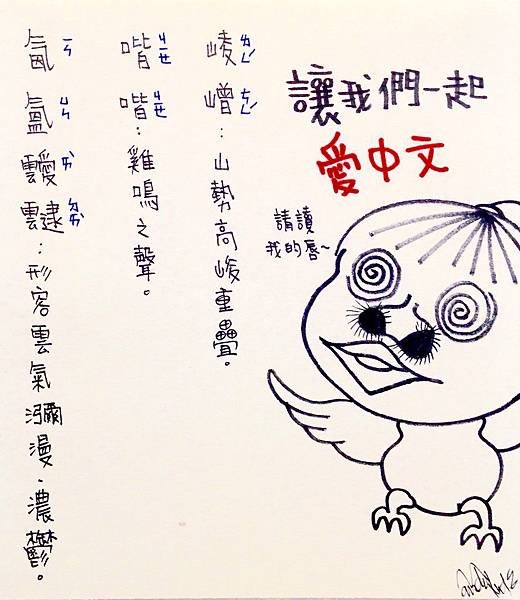 讓我們一起
愛中文
請讀
我的唇~
崚ㄌㄥˊ嶒ㄘㄥˊ：山勢高峻重疊。
喈ㄐㄧㄝ喈ㄐㄧㄝ：雞鳴之聲。
氤ㄧㄣ氳ㄩㄣ靉ㄞˋ靆ㄉㄞˋ：形容雲氣瀰漫、濃鬱。